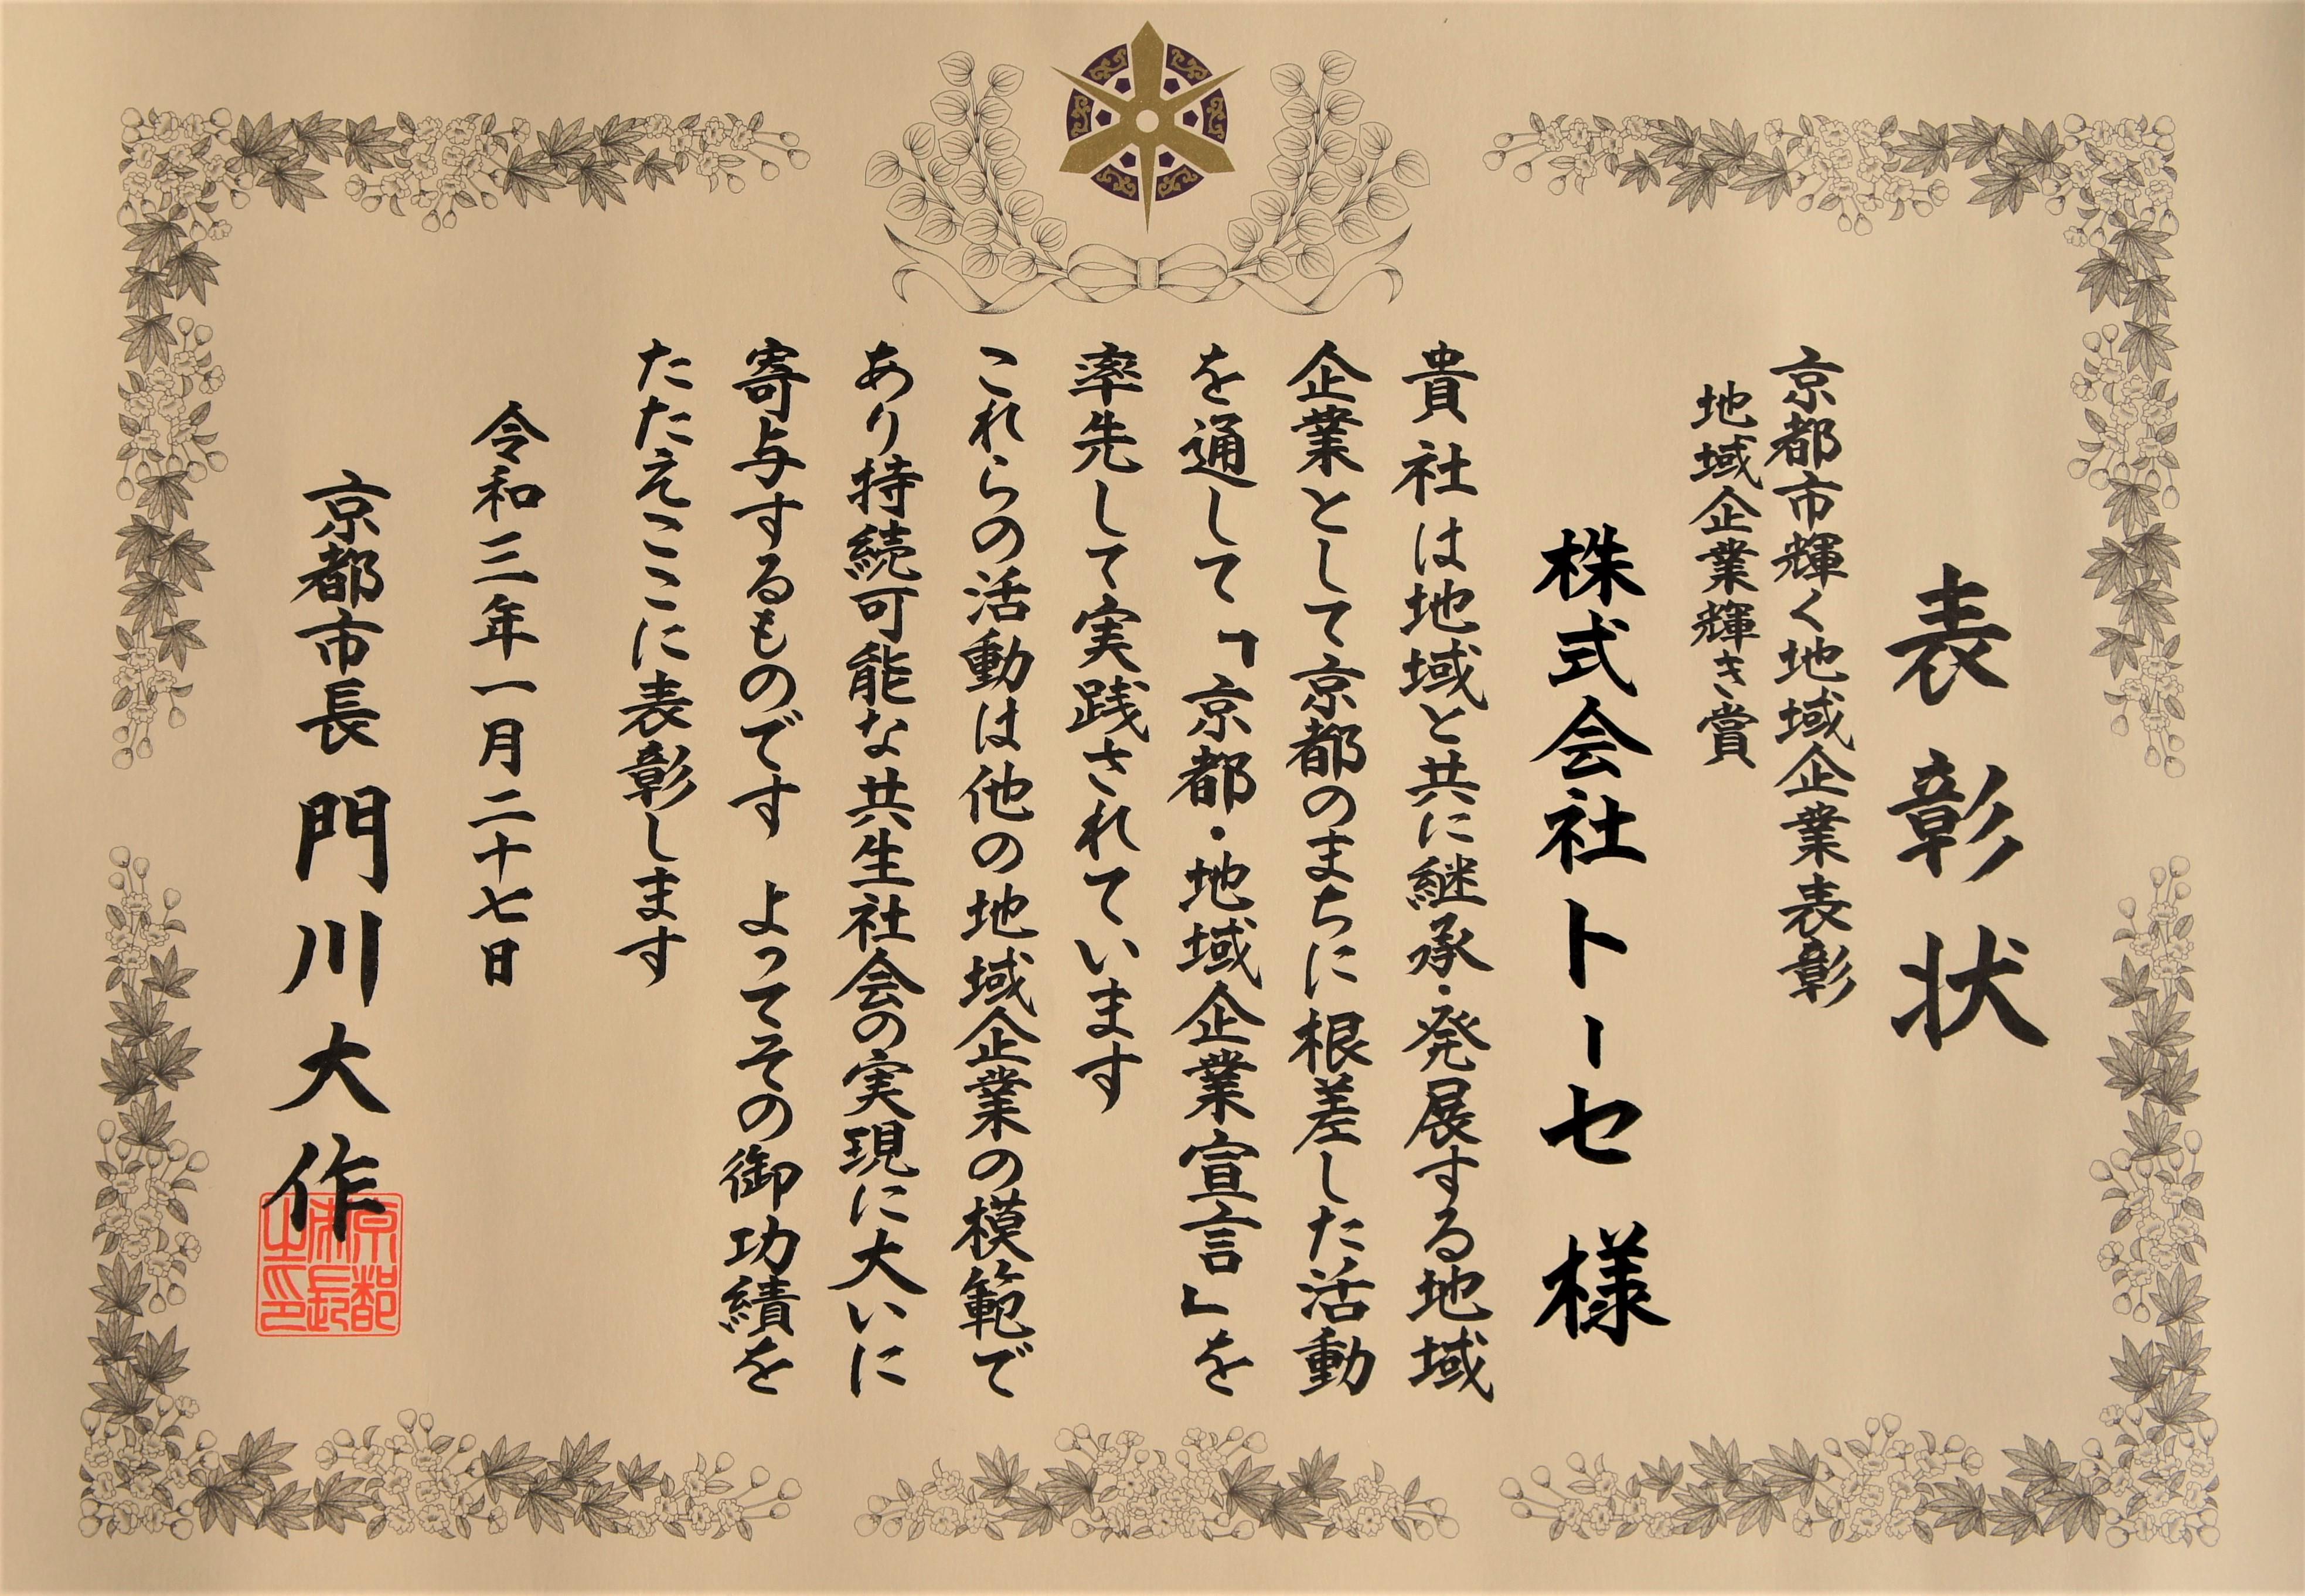 表彰状
京都市輝く地域企業表彰
地域企業輝き賞
株式会社トーセ 様
貴社は地域と共に継承・発展する地域
企業として京都のまちに根差した活動
を通して「京都・地域企業宣言」を
率先して実践されています
これらの活動は他の地域企業の模範で
あり持続可能な共生社会の実現に大いに
寄与するものです よってその御功績を
たたえここに表彰します
令和三年一月二十七日
京都市長 門川大作
京都市長之印